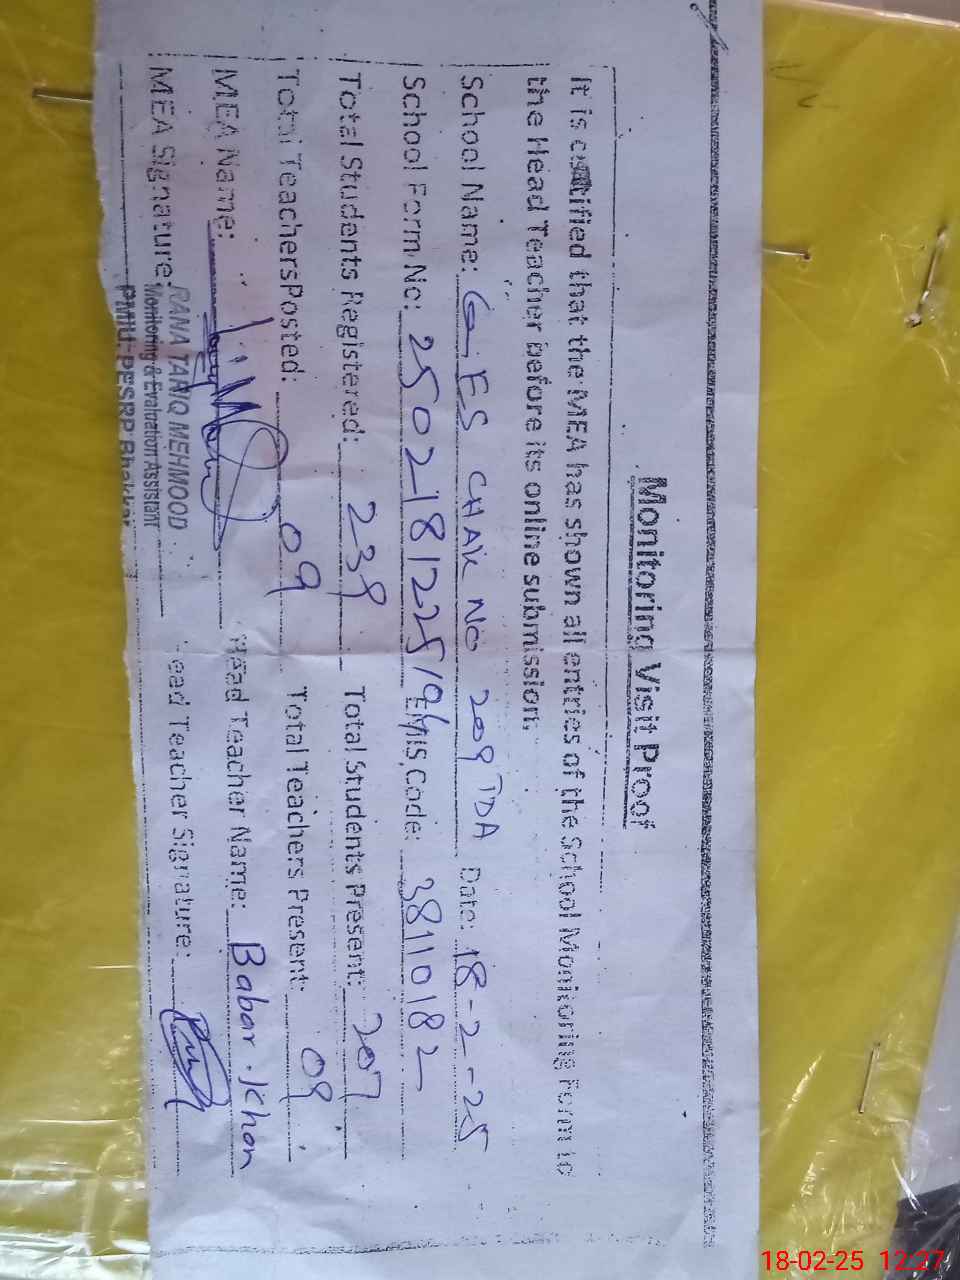 Monitoring Visit Proof
It is certified that the MEA has shown all entries of the School Monitoring Form to
the Head Teacher before its online submission.
School Name: G.ES CHAK NO 209 TDA Date: 18-2-25
School Form No: 2502181225194 EMIS Code: 38110182
Total Students Registered: 239 Total Students Present: 207
Total Teachers Posted: 09 Total Teachers Present: 09
MEA Name: Head Teacher Name: Babar Khan
MEA Signature: ead Teacher Signature:
RANA TARIQ MEHMOOD
Monitoring & Evaluation Assistant
PMIU-PESRP Bhakkar
18-02-25 12:27